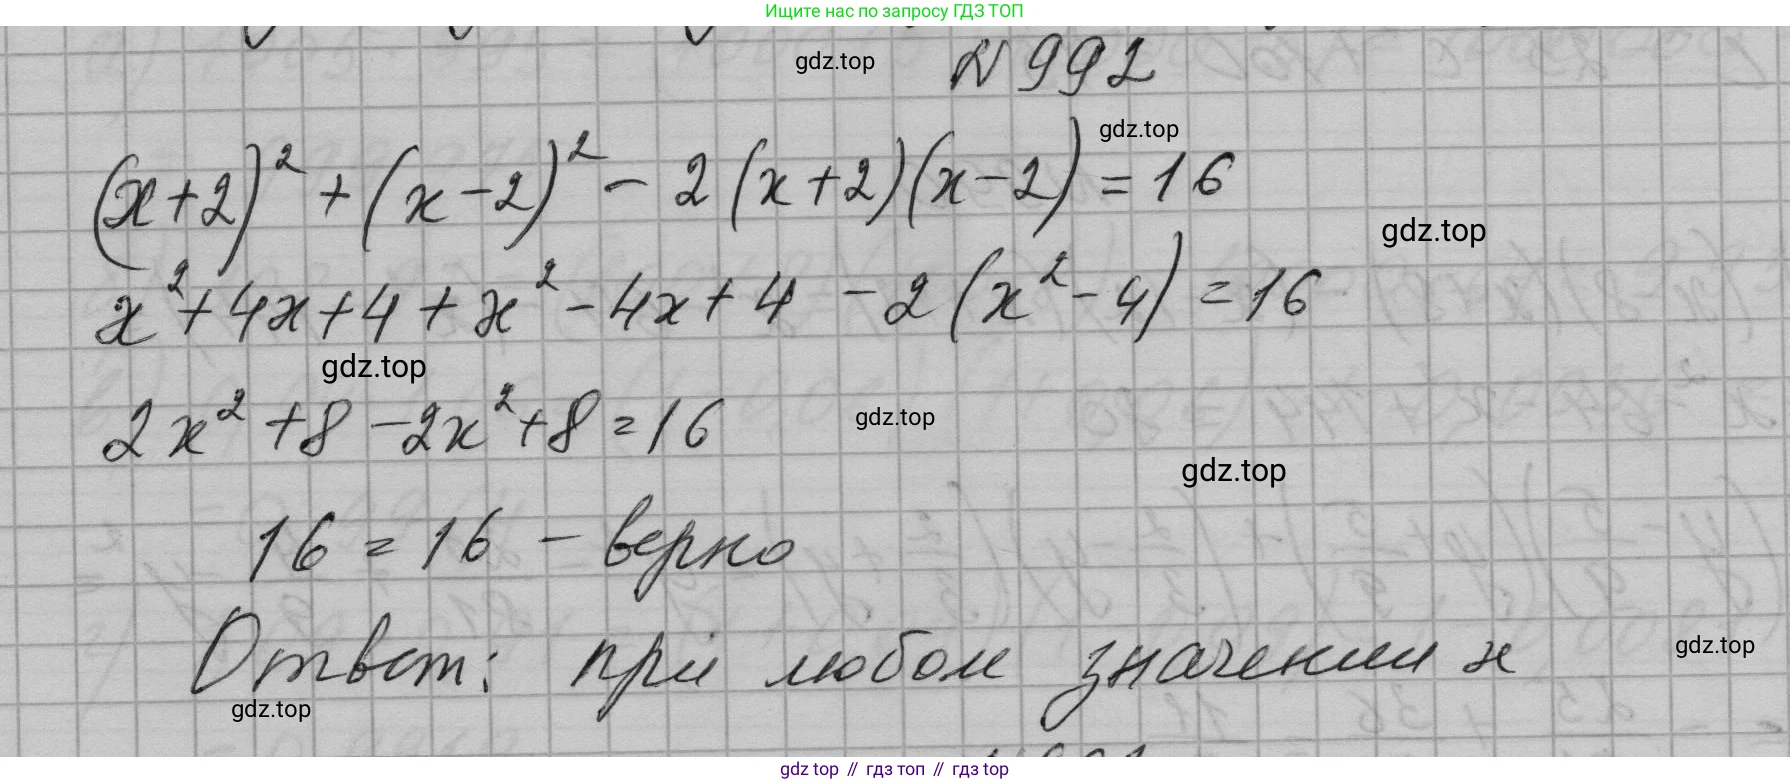 Ищите нас по запросу ГДЗ ТОП
gdz.top
N 992
gdz.top
(x+2)² + (x-2)² - 2(x+2)(x-2) = 16
gdz.top
x² + 4x + 4 + x² - 4x + 4 - 2(x² - 4) = 16
gdz.top
2x² + 8 - 2x² + 8 = 16
gdz.top
gdz.top
16 = 16 - верно
Ответ: при любом значении x
gdz.top
gdz.top
gdz top // гдз топ // гдз top